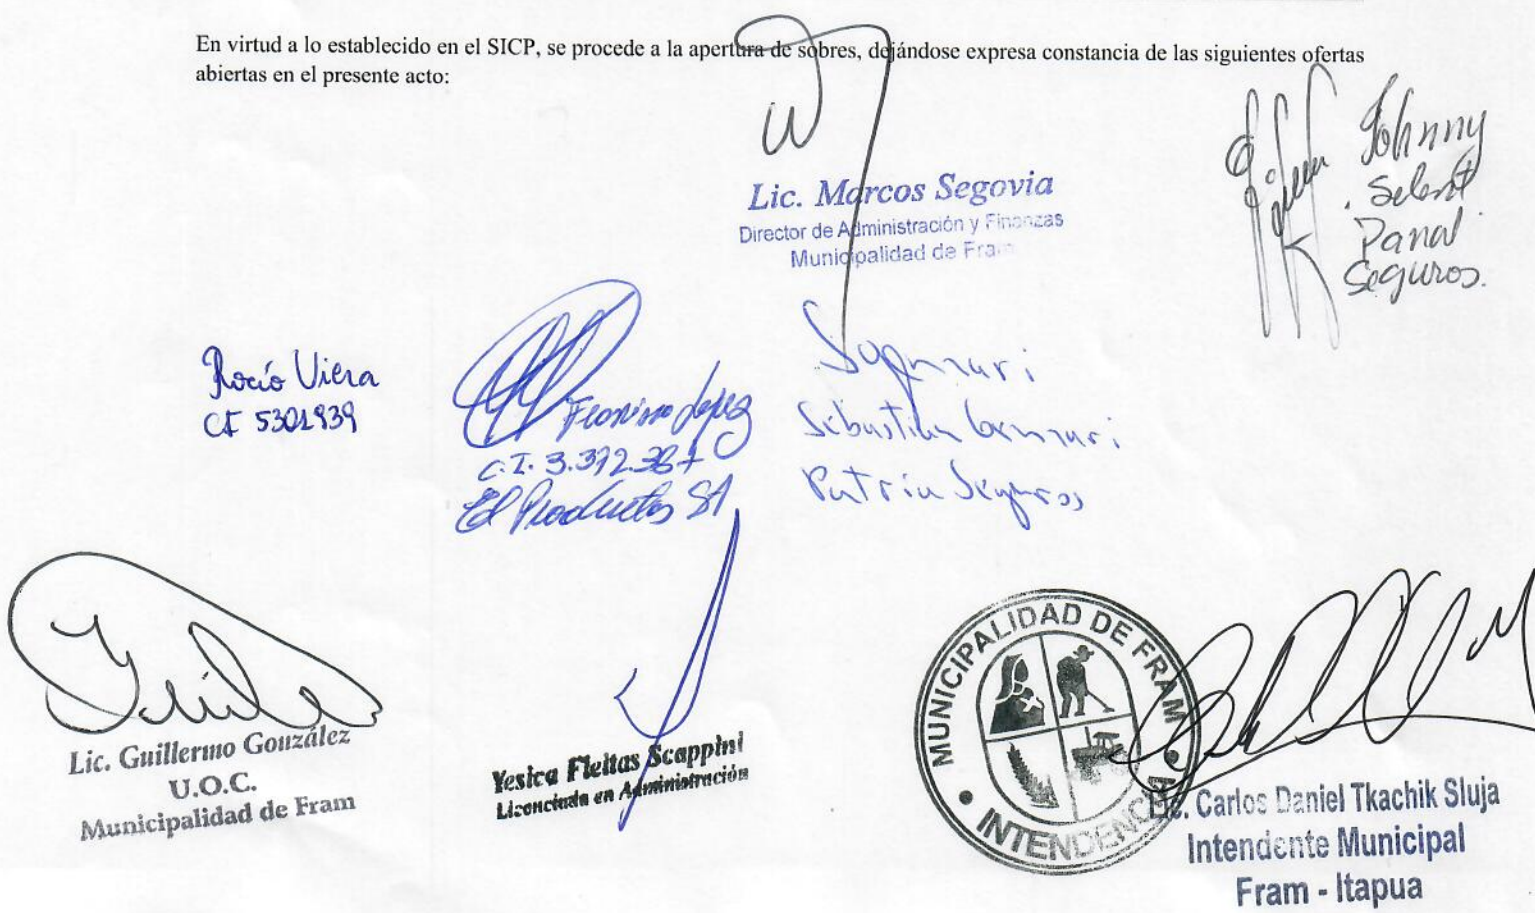 En virtud a lo establecido en el SICP, se procede a la apertura de sobres, dejándose expresa constancia de las siguientes ofertas
abiertas en el presente acto:
Johnny
Selent
Panal
Seguros.
Lic. Marcos Segovia
Director de Administración y Finanzas
Municipalidad de Fra
Rocío Viera
CI 5301939
López
C.I. 3.392.387
El Productor SA
Sebastian
Patria Seguros
Lic. Guillermo González
U.O.C.
Municipalidad de Fram
Yesica Fleitas Scappini
Licenciada en Administración
MUNICIPALIDAD DE FRAM
INTENDENCIA
Lic. Carlos Daniel Tkachik Sluja
Intendente Municipal
Fram - Itapua